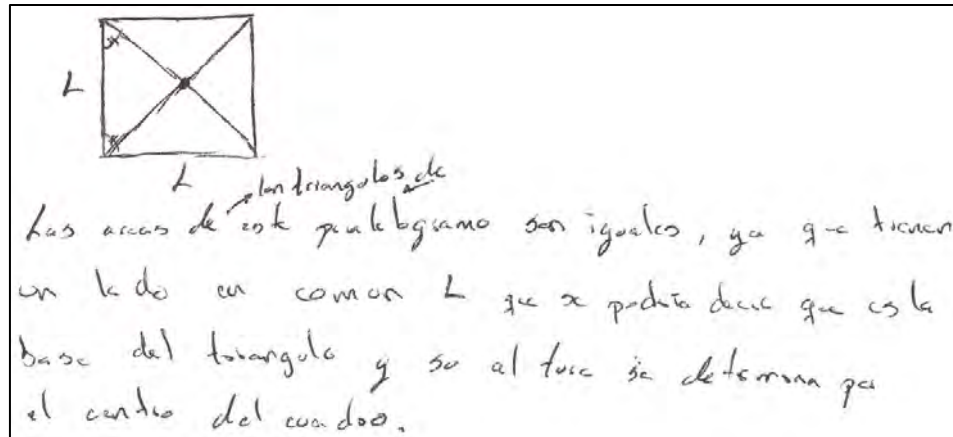 L
L
los triangulos de
Las areas de este paralelogramo son iguales, ya que tienen
un lado en comun L que se podria decir que es la
base del triangulo y su altura se determina por
el centro del cuadro.